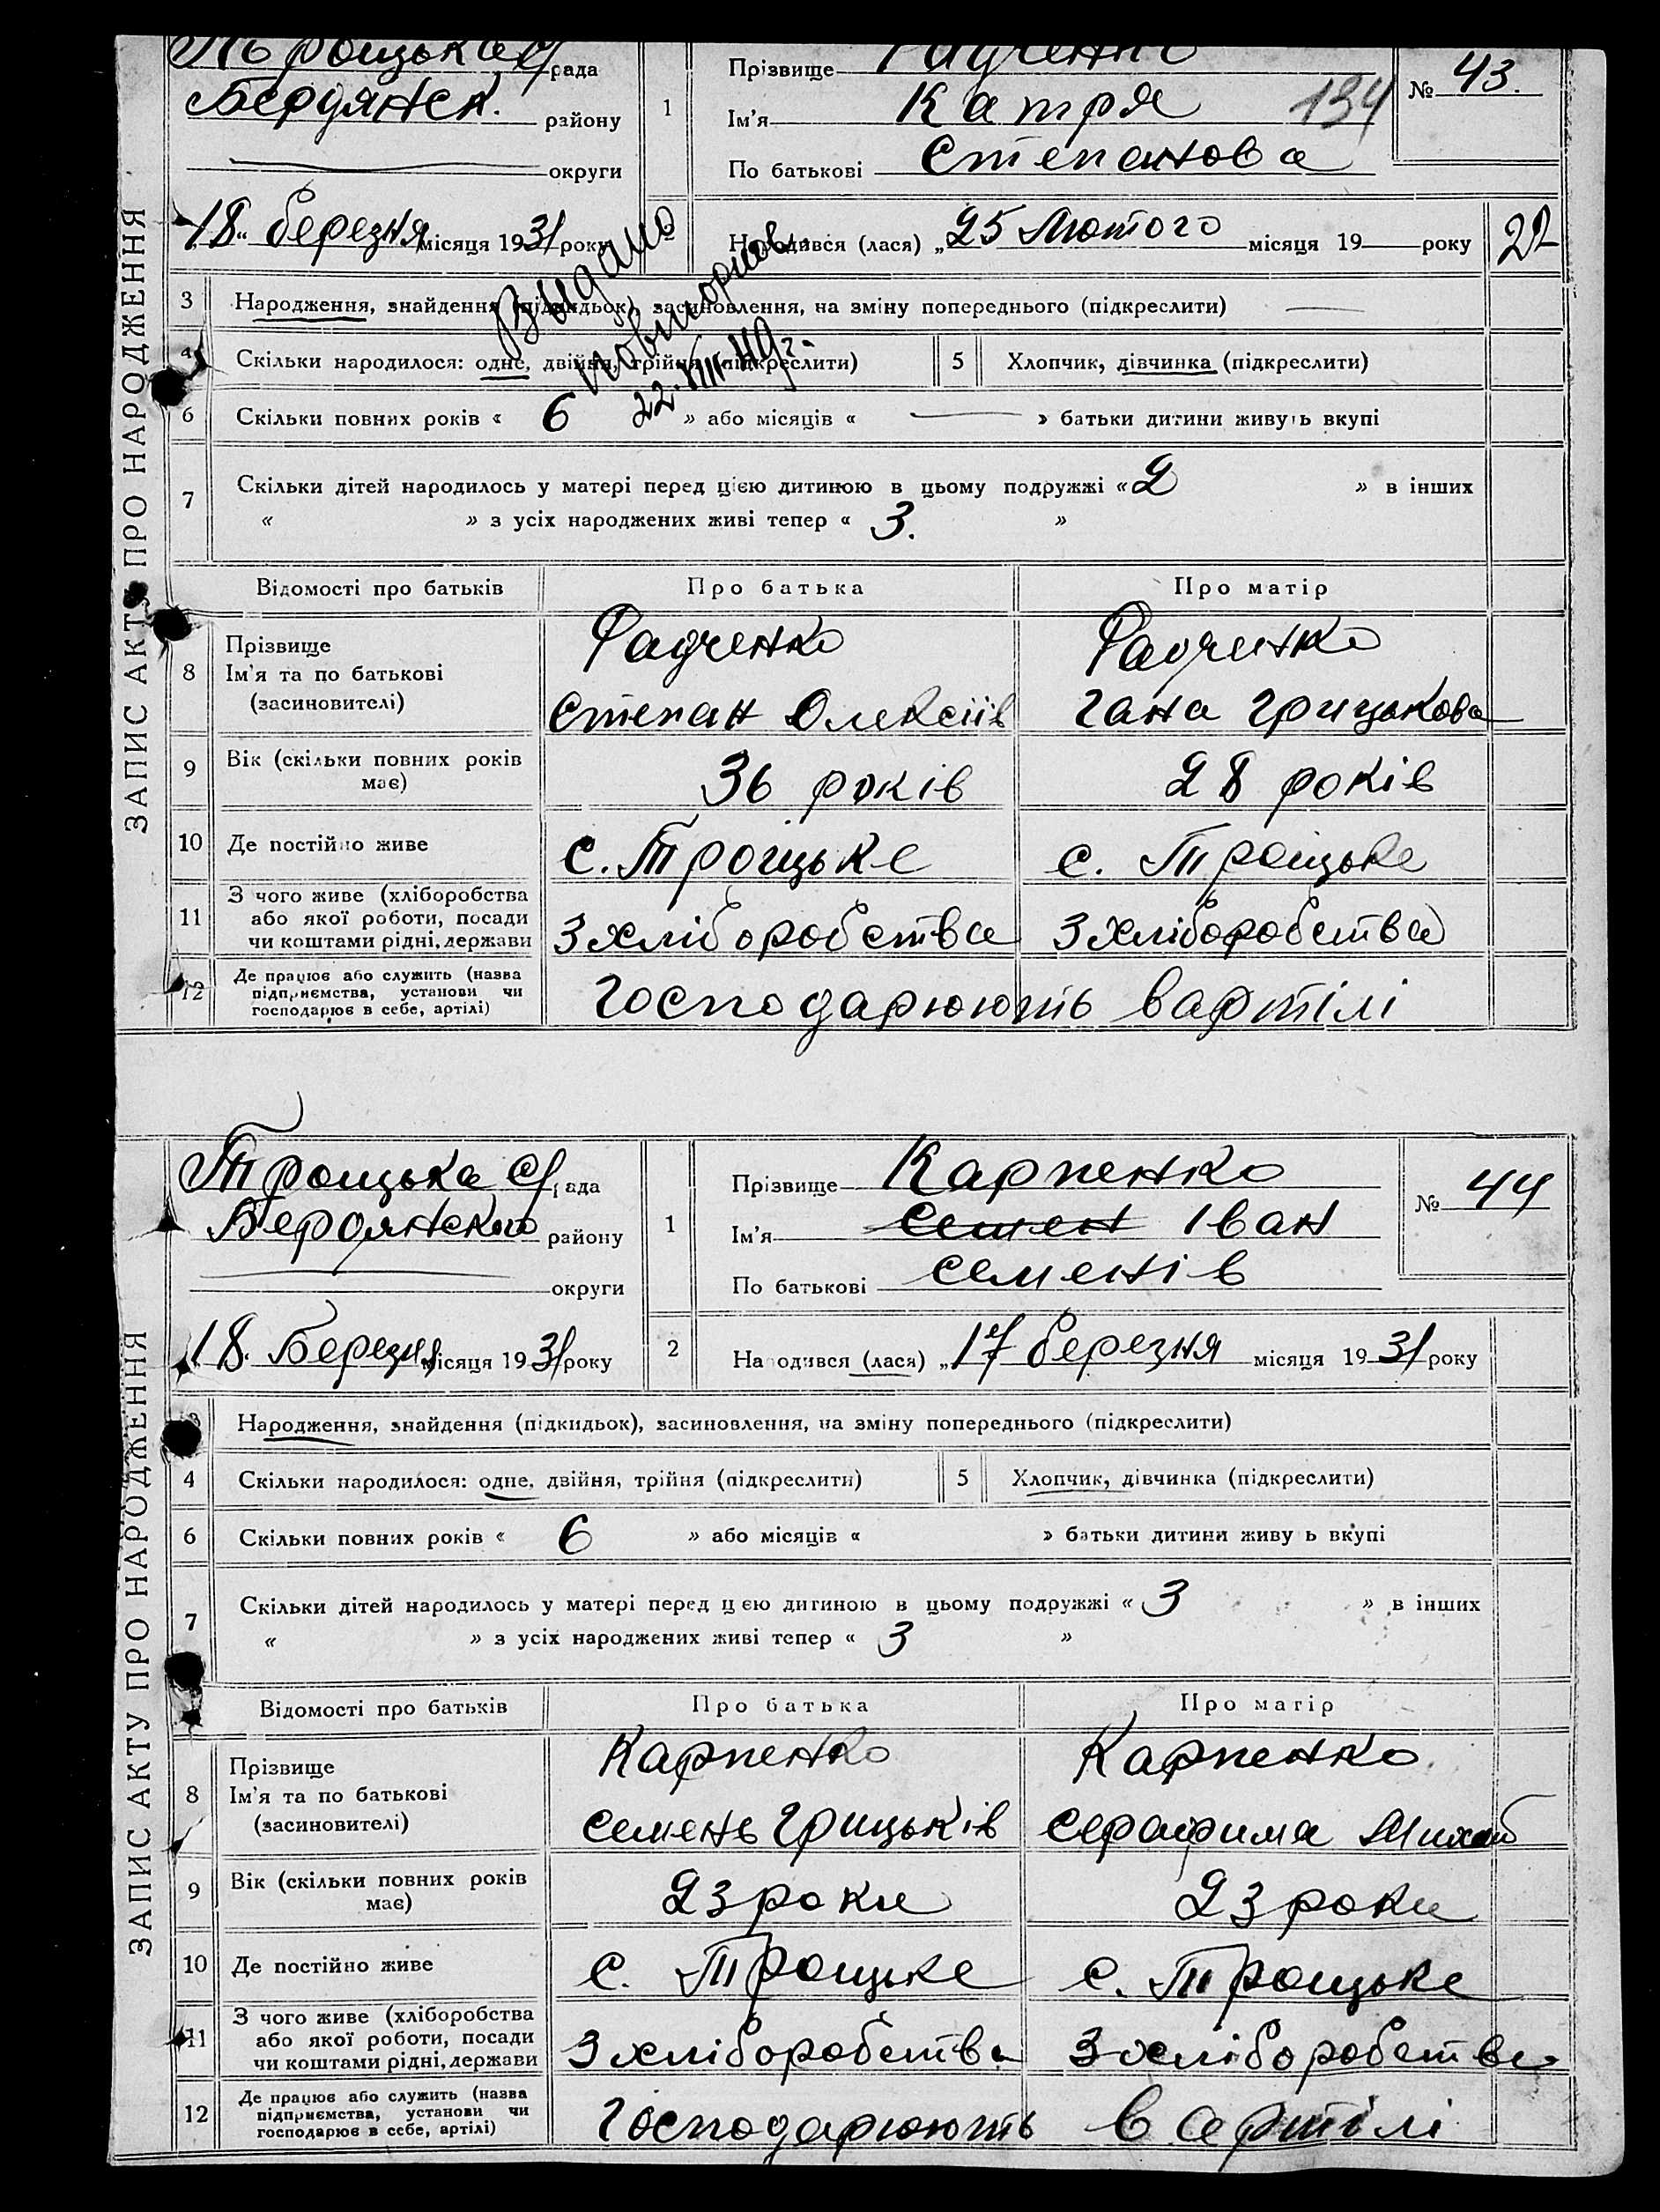 ЗАПИС АКТУ ПРО НАРОДЖЕННЯ
Троїцька с/рада
Бердянськ. району
округи
18. березня місяця 1931 року
1
Прізвище Радченко
Ім'я Катря 134
По батькові Степанова
№ 43.
Народився (лася) „25 Лютого місяця 19 року 22
Видано
повторнов.
22.VIII-49г.
3 Народження, знайдення (підкидьок), засиновлення, на зміну попереднього (підкреслити)
4 Скільки народилося: одне, двійня, трійня (підкреслити) 5 Хлопчик, дівчинка (підкреслити)
6 Скільки повних років « 6 » або місяців « » батьки дитини живуть вкупі
7 Скільки дітей народилось у матері перед цією дитиною в цьому подружжі « 2 » в інших
« » з усіх народжених живі тепер « 3. »
Відомості про батьків Про батька Про матір
8 Прізвище
Ім'я та по батькові
(засиновителі)
Радченко
Степан Олексіїв
Радченко
Гана Грицькова
9 Вік (скільки повних років
має)
36 років 28 років
10 Де постійно живе с. Троїцьке с. Троїцьке
11 З чого живе (хліборобства
або якої роботи, посади
чи коштами рідні, держави
З хліборобства З хліборобства
12 Де працює або служить (назва
підприємства, установи чи
господарює в себе, артілі)
Господарюють в артілі
ЗАПИС АКТУ ПРО НАРОДЖЕННЯ
Троицька с/рада
Бердянского району
округи
18. Березня місяця 1931 року
1
Прізвище Карпенко
Ім'я Семен Іван
По батькові Семенів
№ 44
2 Народився (лася) „17 березня місяця 1931 року
3 Народження, знайдення (підкидьок), засиновлення, на зміну попереднього (підкреслити)
4 Скільки народилося: одне, двійня, трійня (підкреслити) 5 Хлопчик, дівчинка (підкреслити)
6 Скільки повних років « 6 » або місяців « » батьки дитини живу ь вкупі
7 Скільки дітей народилось у матері перед цією дитиною в цьому подружжі « 3 » в інших
« » з усіх народжених живі тепер « 3 »
Відомості про батьків Про батька Про матір
8 Прізвище
Ім'я та по батькові
(засиновителі)
Карпенко
Семень Грицьків
Карпенко
Серафима Михай
9 Вік (скільки повних років
має)
23 роки 23 роки
10 Де постійно живе с. Троицьке с. Троицьке
11 З чого живе (хліборобства
або якої роботи, посади
чи коштами рідні, держави
З хліборобства З хліборобства
12 Де працює або служить (назва
підприємства, установи чи
господарює в себе, артілі)
Господарюють в артілі